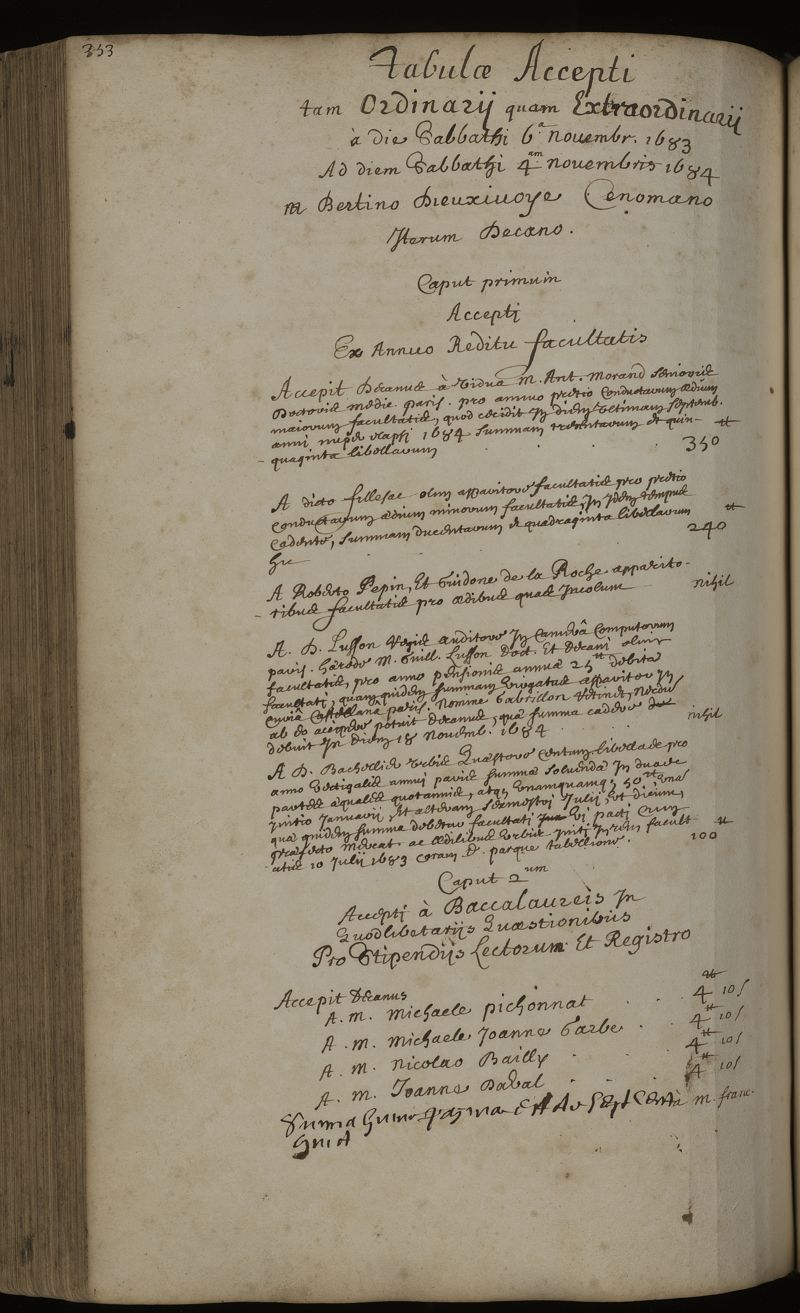 353
Tabulæ Accepti
tam Ordinarij quam Extraordinarij
à die Sabbathi 6.ª novembr. 1683
Ad diem Sabbathi 4.am novembris 1684
M Bertino Dieuxivoye Cenomano
Iterum Decano.
Caput primum
Accepti
Ex Annuo Reditu facultatis
Accepit Decanus à vidua M. Ant. Morand senioris
Doctoris medic. paris. pro annuo pretio conductarum ædium
maiorum facultatis, quod cecidit in diem septemb.
anni nuper elapsi 1684 summam trecentarum et quin-
quaginta libellarum 350 tt
A dicto fillesac olim apparitore facultatis pro pretio
conductarum ædium minorum facultatis, In Idem tempus
cadente, summam ducentarum et quadraginta libellarum
hic 240 tt
A Roberto Pepin, Et Guidone de la Roche apparito-
ribus facultatis pro ædibus quas Incolunt nihil
A. D. Lusson regis auditore In camerâ computorum
paris. hærede M. Guill. Lusson Doct. Et Decani olim
facultatis, pro anno pensionis annuæ 25 tt debita
facultati, quam quidem summam apparitor In
curiâ Castellana paris. nomine Gabrillon retinet, necdum
ab eo accipere potuit Decanus, quæ summa cadere
debuit In diem 18 Novemb. 1684 nihil
A D. Bachelier urbis Quæstore centum libellas pro
anno vectigalis annui paris summa solvenda In duas
partes æquales quotannis, atque unamquamque 50 tt unâ
initio Januarij, Et alteram semestri Julij, Et dicunt,
quæ quidem summa debetur facultati vi pacti cum
præfecto mercat. ac ædilibus urbis initi In rem facult
atis 10 Julij 1683 coram D. parque tabellione. 100 tt
Caput 2um
Accepti à Baccalaureis In
Quodlibetarijs Quæstionibus
Pro Stipendijs Lectorum Et Registro
Accepit Decanus
A. M. Michaele pichonnat 4 tt 10 s
A. M. Michaele Joanne Garbe 4 tt 10 s
A. M. Nicolao Bailly 4 tt 10 s
A. M. Joanne Daval 4 tt 10 s
Summa huius paginæ Est Ad Septcenta m. franc.